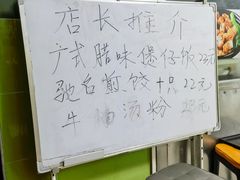 店长推介
广式腊味煲仔饭23元
驰名煎饺十只22元
牛 汤粉 元